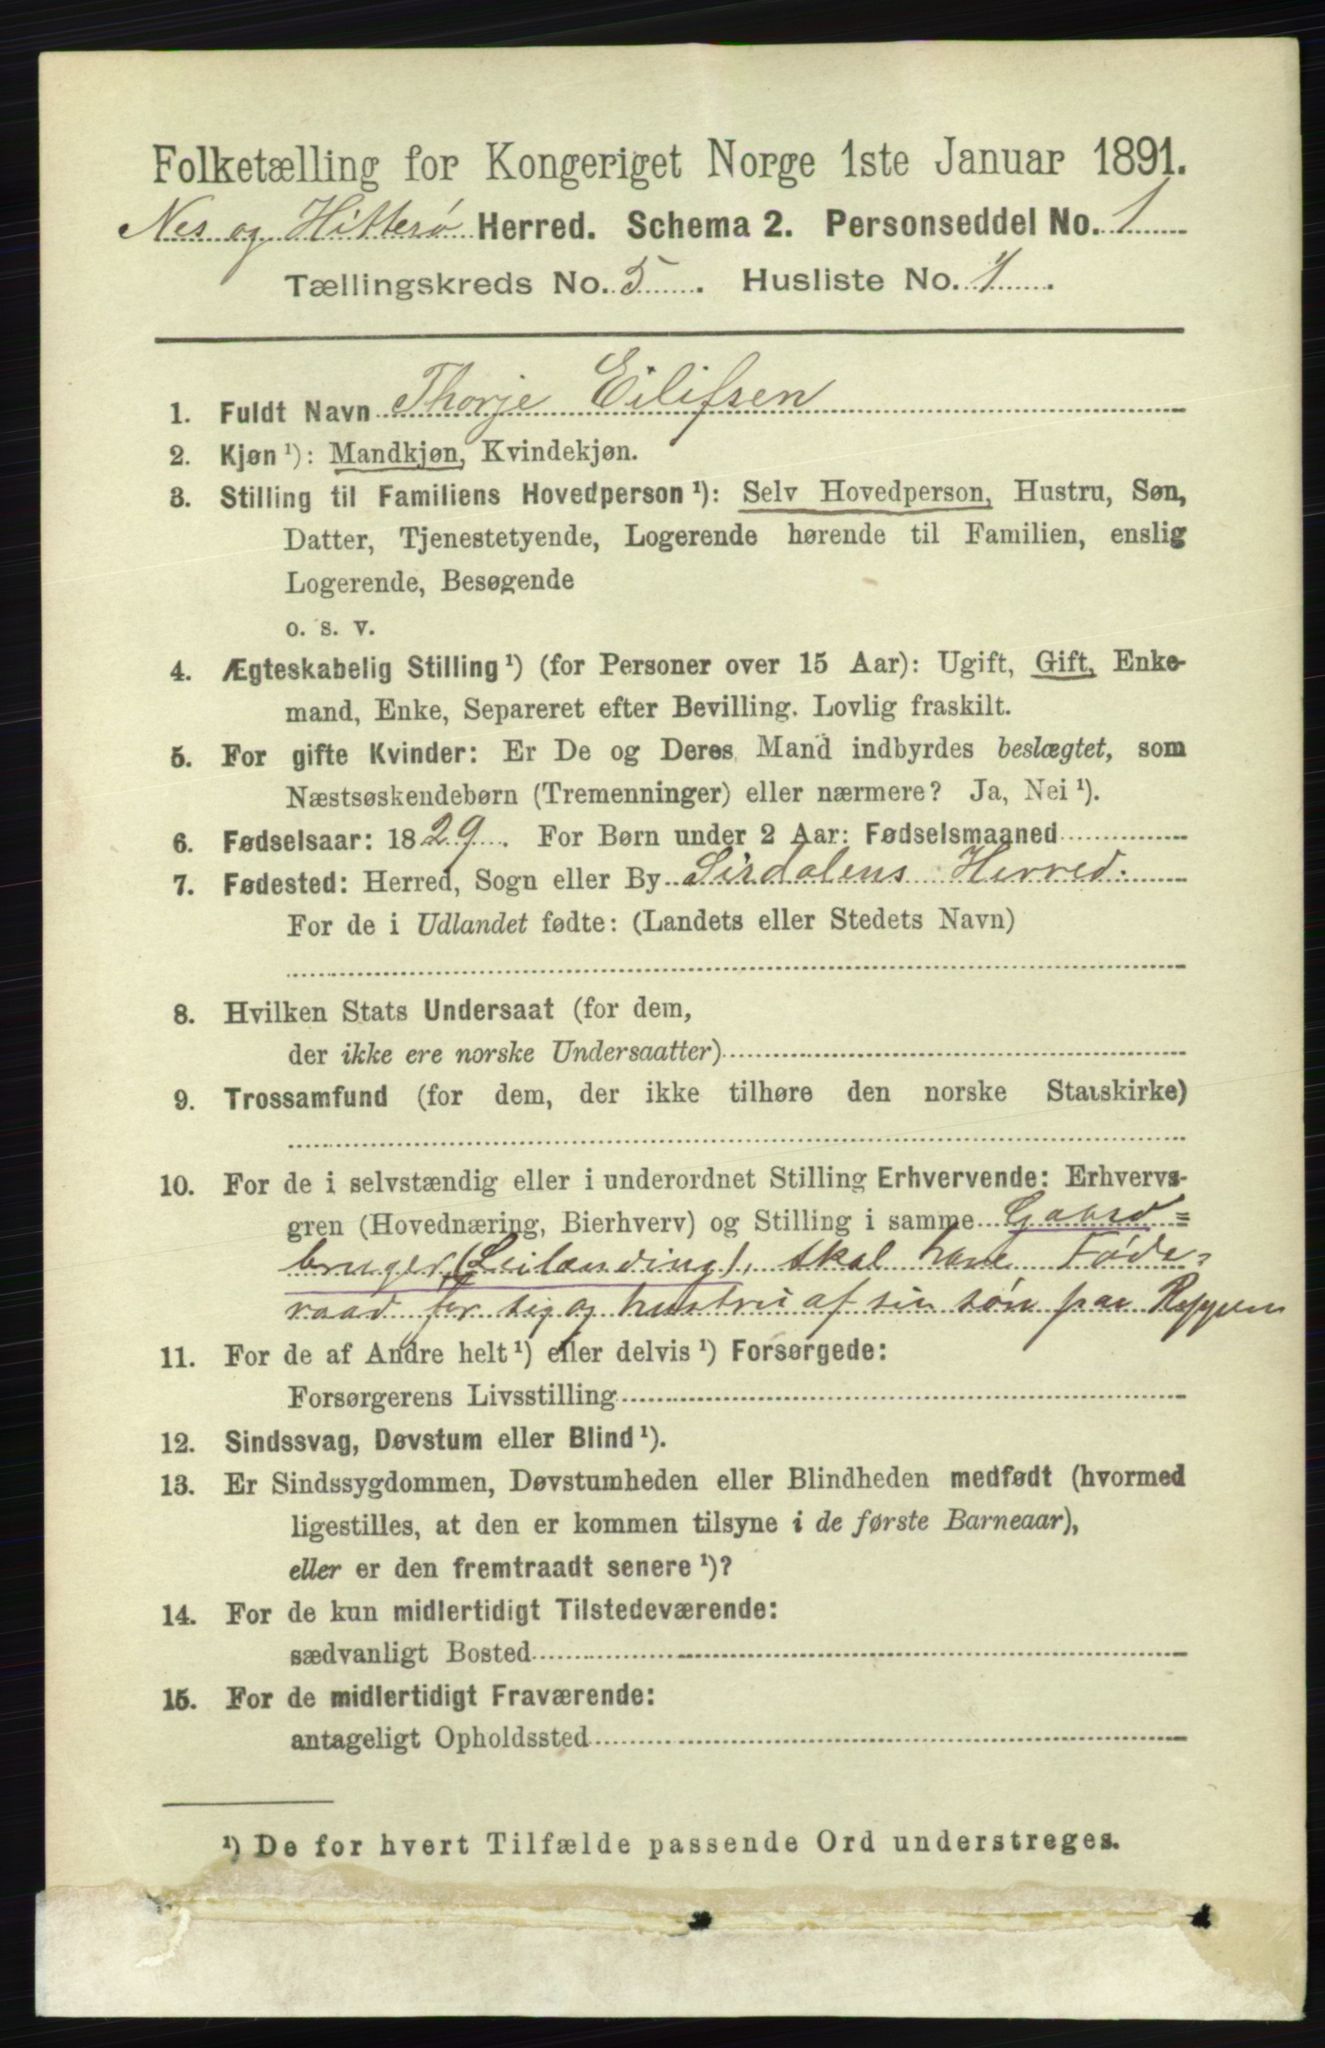 Folketælling for Kongeriget Norge 1ste Januar 1891.
Nes og Hitterø Herred. Schema 2. Personseddel No. 1
Tællingskreds No. 5. Husliste No. 1.
1. Fuldt Navn Thorje Eilifsen
2. Kjøn ¹): Mandkjøn, Kvindekjøn.
3. Stilling til Familiens Hovedperson ¹): Selv Hovedperson, Hustru, Søn,
Datter, Tjenestetyende, Logerende hørende til Familien, enslig
Logerende, Besøgende
o. s. v.
4. Ægteskabelig Stilling ¹) (for Personer over 15 Aar): Ugift, Gift, Enke-
mand, Enke, Separeret efter Bevilling. Lovlig fraskilt.
5. For gifte Kvinder: Er De og Deres Mand indbyrdes beslægtet, som
Næstsøskendebørn (Tremenninger) eller nærmere? Ja, Nei ¹).
6. Fødselsaar: 1829. For Børn under 2 Aar: Fødselsmaaned
7. Fødested: Herred, Sogn eller By Sirdalens Herred.
For de i Udlandet fødte: (Landets eller Stedets Navn)
8. Hvilken Stats Undersaat (for dem,
der ikke ere norske Undersaatter)
9. Trossamfund (for dem, der ikke tilhøre den norske Statskirke)
10. For de i selvstændig eller i underordnet Stilling Erhvervende: Erhvervs-
gren (Hovednæring, Bierhverv) og Stilling i samme Gaard=
bruger (Leilænding), skal have Føde=
raad for sig og hustru af sin søn paa
11. For de af Andre helt ¹) eller delvis ¹) Forsørgede:
Forsørgerens Livsstilling
12. Sindssvag, Døvstum eller Blind ¹).
13. Er Sindssygdommen, Døvstumheden eller Blindheden medfødt (hvormed
ligestilles, at den er kommen tilsyne i de første Barneaar),
eller er den fremtraadt senere ¹)?
14. For de kun midlertidigt Tilstedeværende:
sædvanligt Bosted
15. For de midlertidigt Fraværende:
antageligt Opholdssted
¹) De for hvert Tilfælde passende Ord understreges.